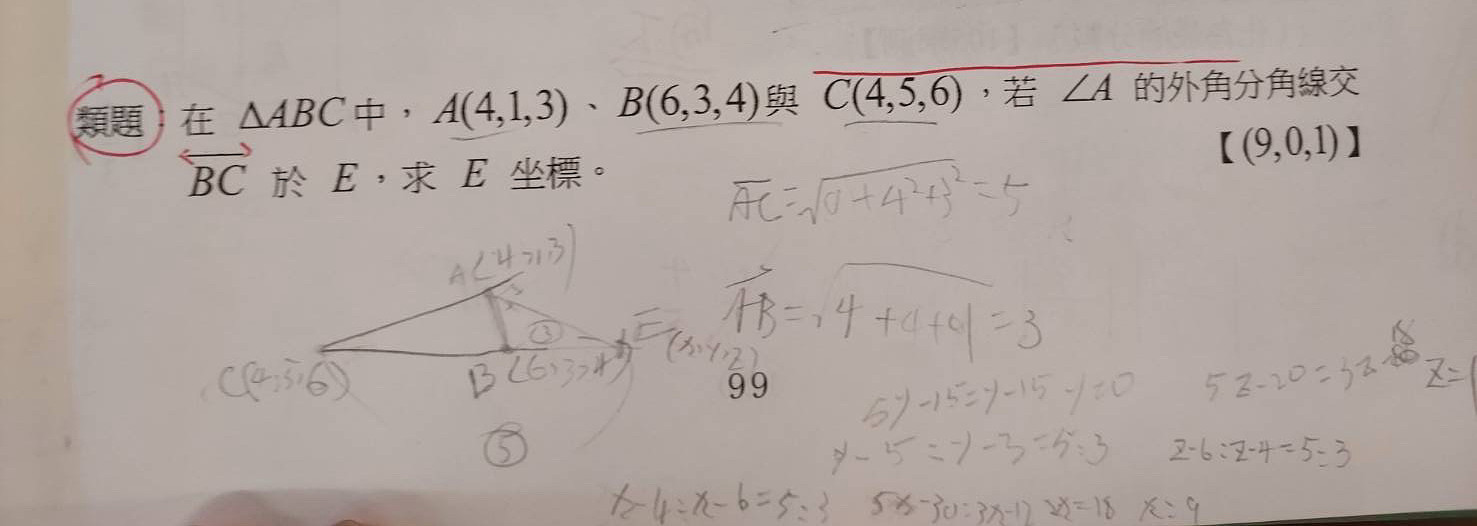 類題：在 ΔABC中，A(4,1,3)、B(6,3,4)與 C(4,5,6)，若 ∠A 的外角分角線交
BC 於 E，求 E 坐標。 【(9,0,1)】
AC=√0+4²+3²=5
A(4,1,3)
AB=√4+4+1=3
③ E(x,y,z)
C(4,5,6) B(6,3,4)
99
5y-15=y-15 y=0 5z-20=3z-18 z=1
⑤
y-5:y-3=5:3 z-6:z-4=5:3
x-4:x-6=5:3 5x-30=3x-12 2x=18 x=9